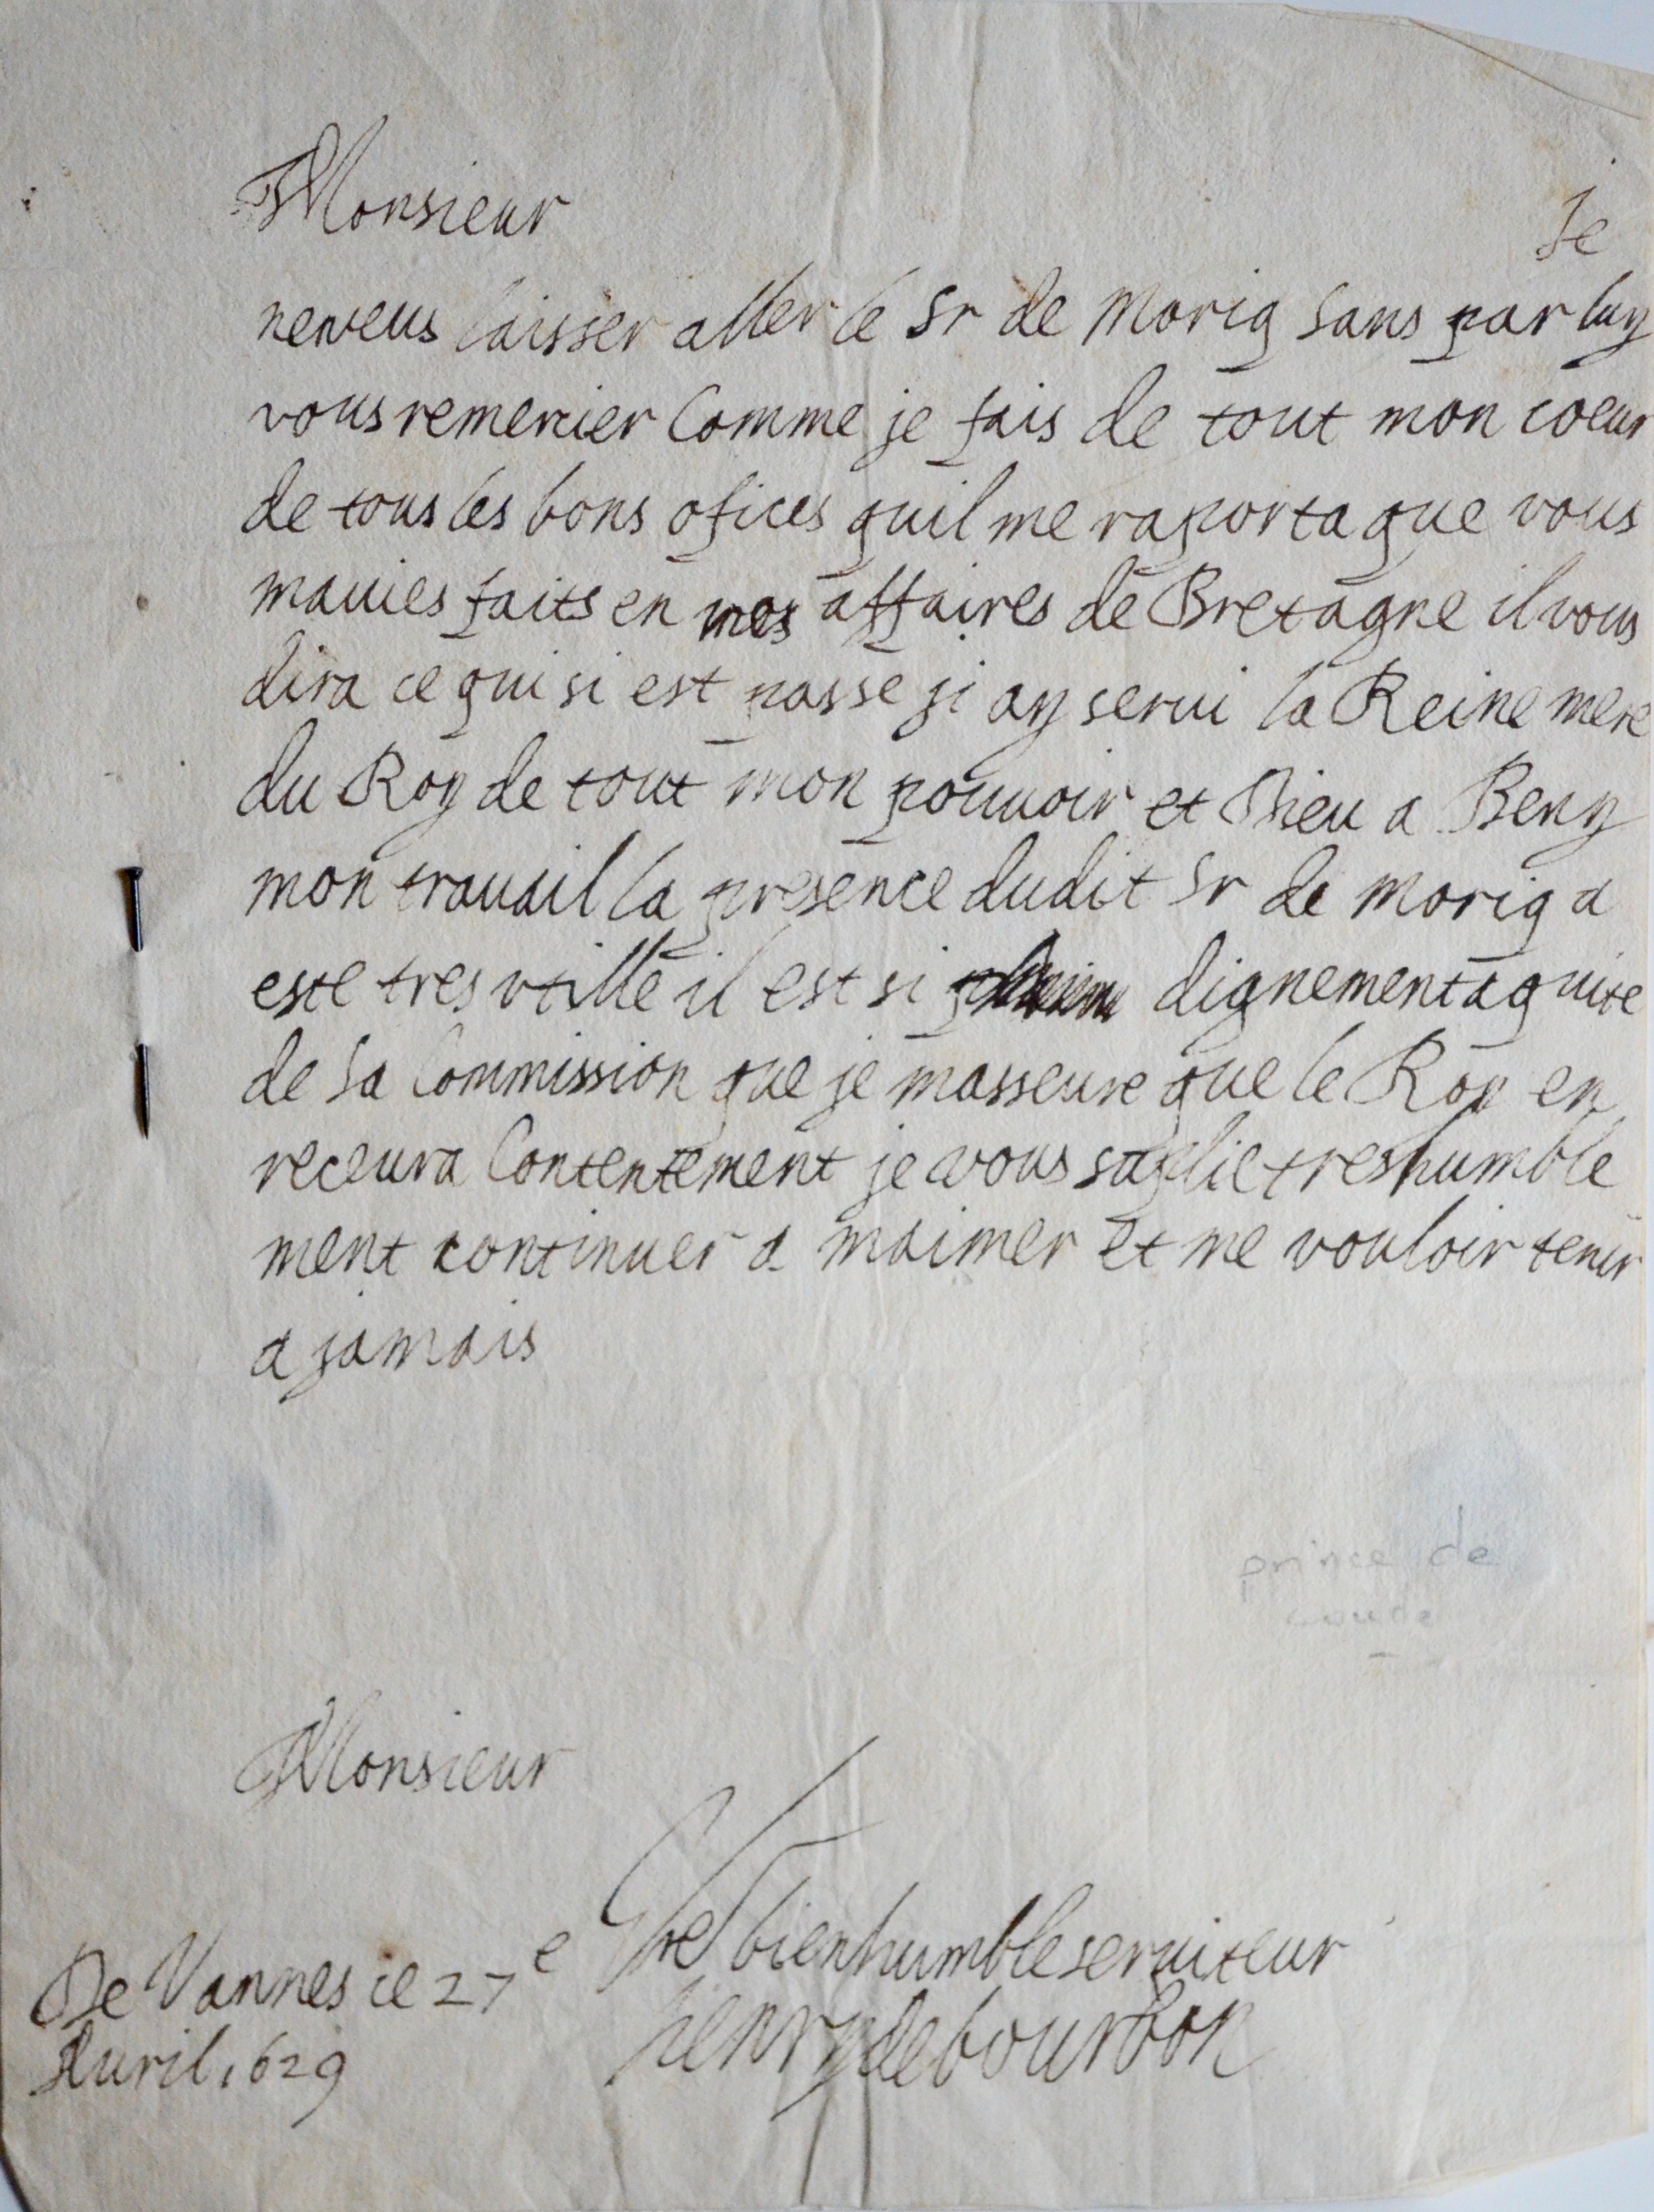 Monsieur
Je
neveus laisser aller le Sr de Morig sans par luy
vous remercier Comme je fais de tout mon coeur
de tous les bons ofices quil me raporta que vous
mauies faits en mes affaires de Bretagne il vous
dira ce qui si est passe ji ay serui la Reine mere
du Roy de tout mon pouuoir et Dieu a Beny
mon trauail la presence dudit Sr de Morig a
este tres vtille il est si dignement aquite
de sa Commission que je masseure que le Roy en
receura Contentement je vous suplie treshumble
ment continuer a maimer et me vouloir tenir
a jamais
prince de
conde
Monsieur
Vre bienhumble seruiteur
henry de bourbon
De Vannes ce 27e
Auril 1629